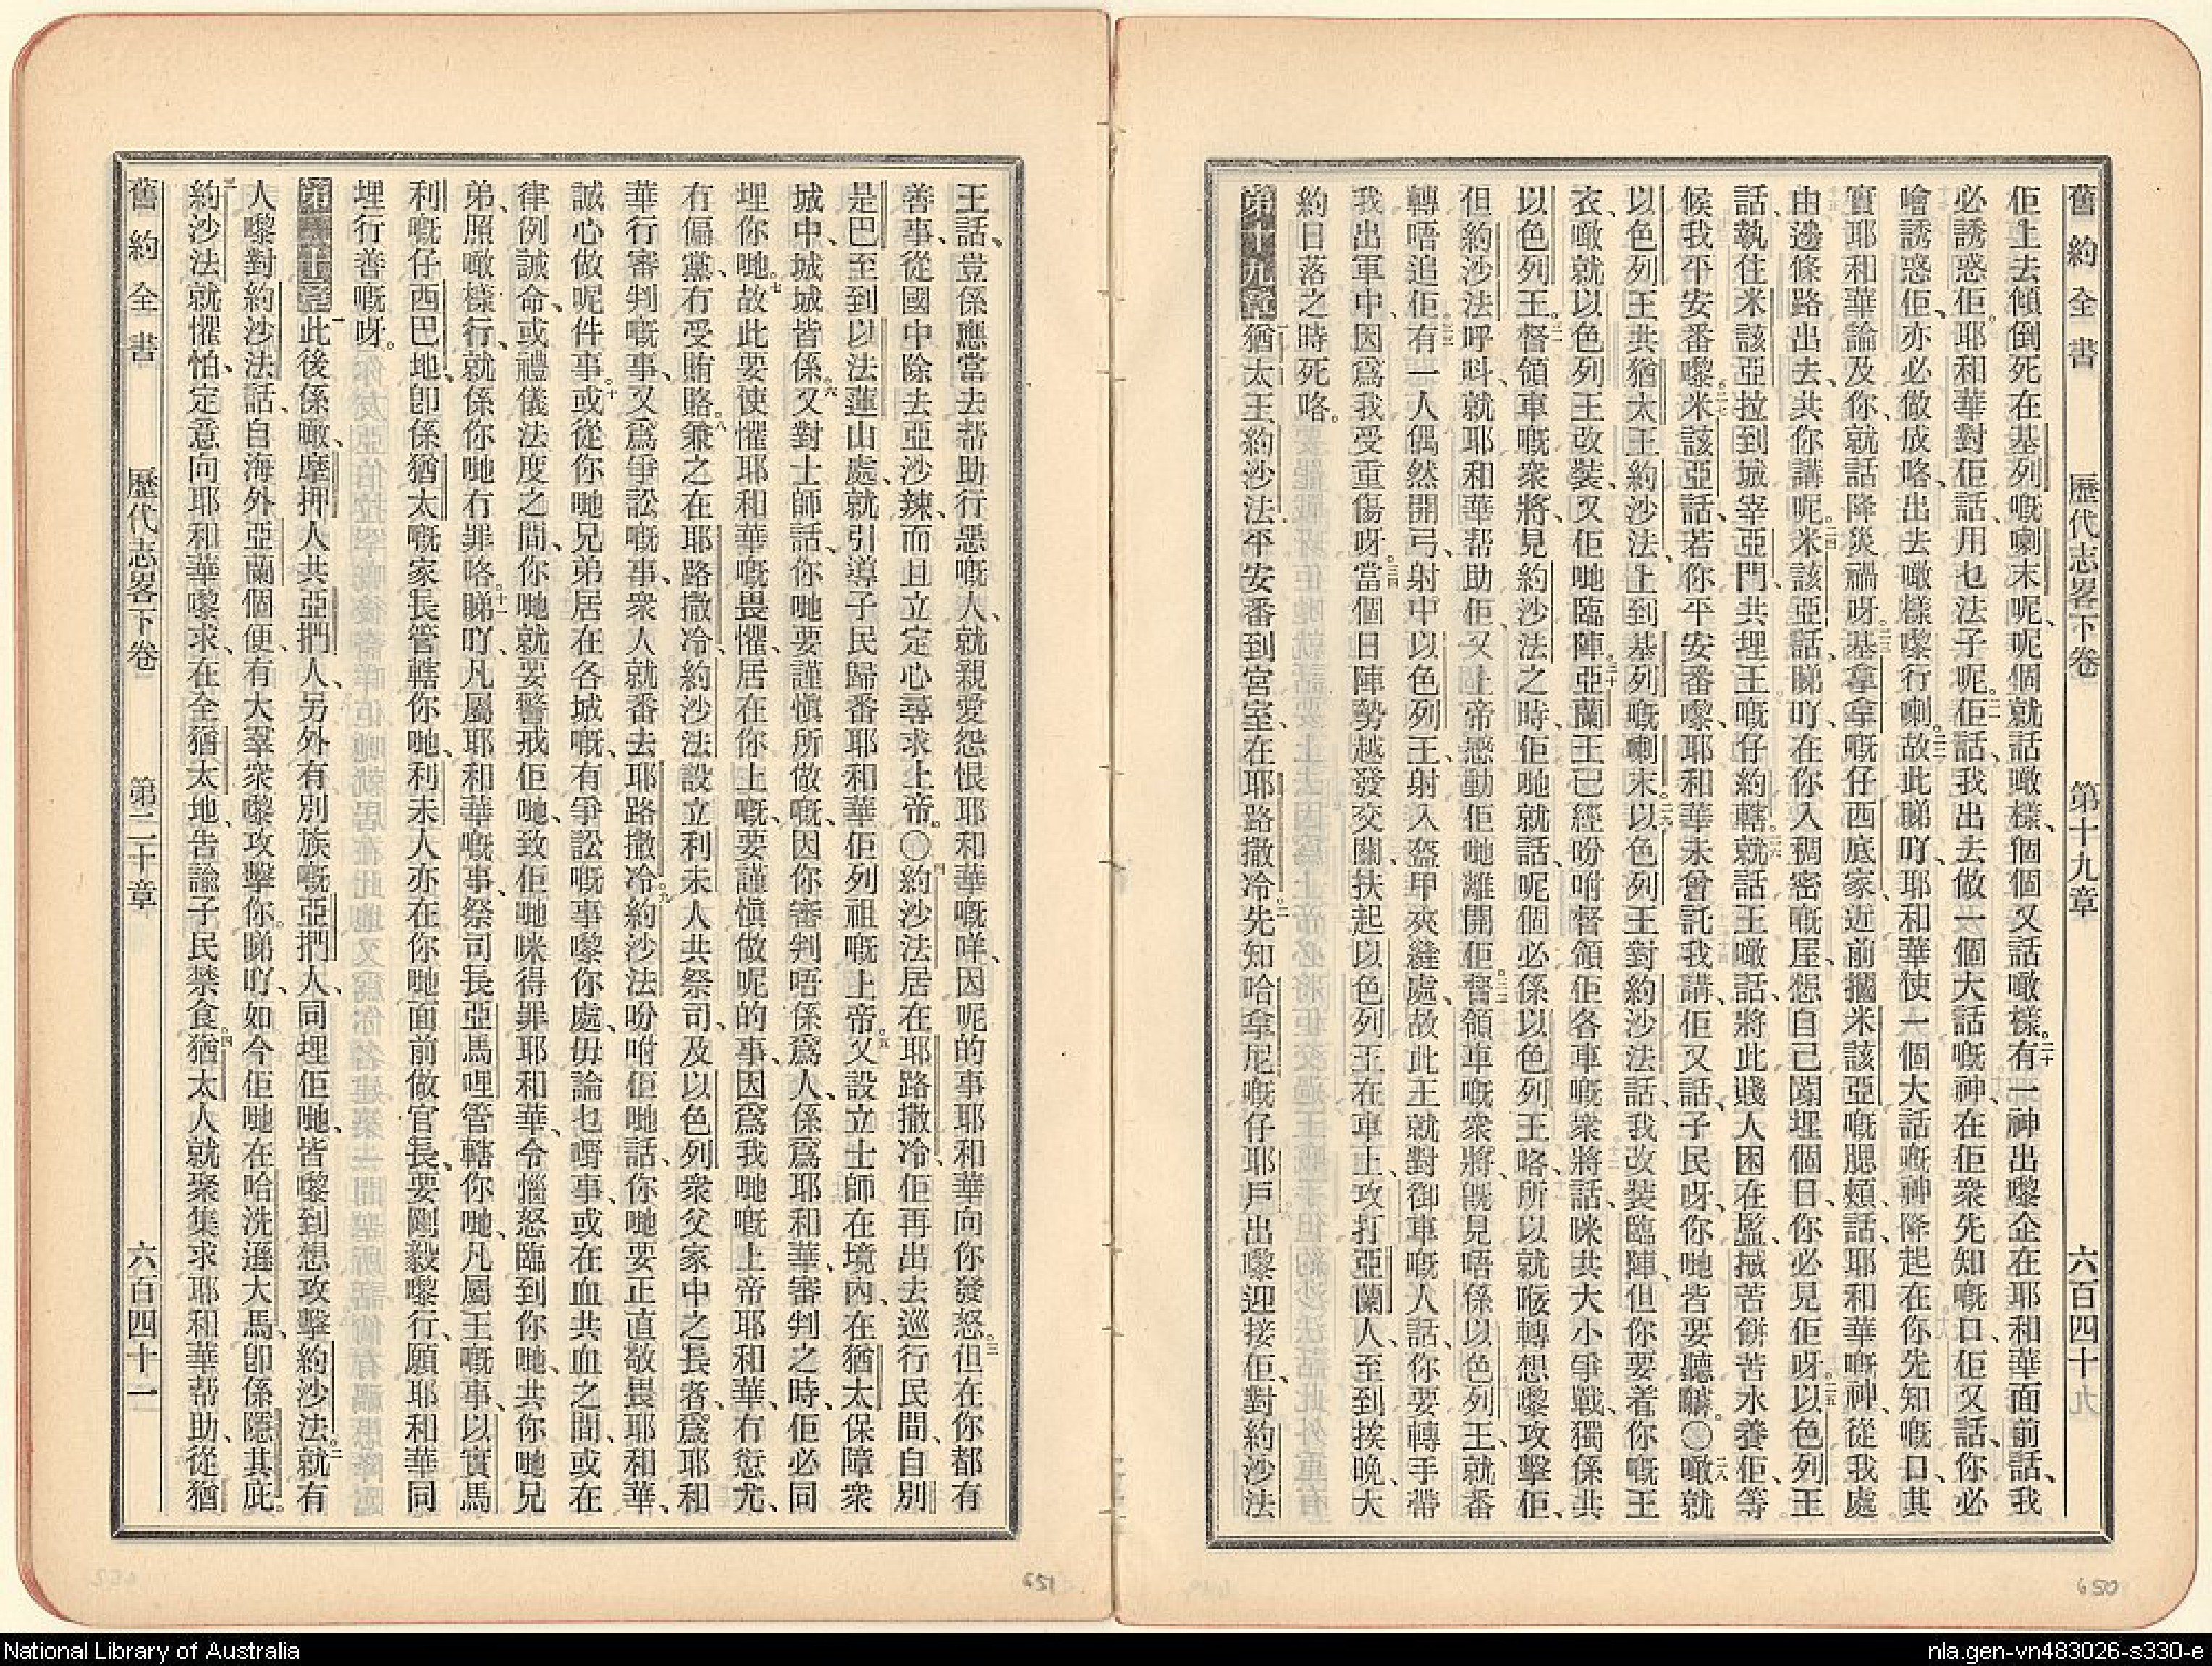 舊約全書 歷代志畧下卷 第十九章 六百四十九
佢上去傾倒死在基列嘅喇末呢、呢個就話噉樣、個個又話噉樣。二十有一神出嚟企在耶和華面前話、我
必誘惑佢。耶和華對佢話用乜法子呢。二一佢話、我出去做一個大話嘅神、在佢衆先知嘅口、佢又話、你必
噲誘惑佢、亦必做成咯、出去噉樣嚟行喇。二二故此睇吖、耶和華使一個大話嘅神降起在你先知嘅口、其
實耶和華論及你、就話降災禍呀。二三基拿拿嘅仔西底家、近前摑米該亞嘅腮頰、話、耶和華嘅神、從我處
由邊條路出去、共你講呢。二四米該亞話、睇吖、在你入稠密嘅屋、想自己匿埋個日、你必見佢呀。二五以色列王
話、執住米該亞拉到城宰亞們、共埋王嘅仔約轄。二六就話王噉話、將此賤人困在監、搣苦餅苦水養佢、等
候我平安番嚟。二七米該亞話、若你平安番嚟、耶和華未曾託我講、佢又話、子民呀、你哋皆要聽嚹。〇二八噉就
以色列王共猶太王約沙法、上到基列嘅喇末。二九以色列王對約沙法話、我改裝臨陣、但你要着你嘅王
衣、噉就以色列王改裝、又佢哋臨陣。三十亞蘭王已經吩咐督領佢各車嘅衆將話、咪共大小爭戰、獨係共
以色列王。三一督領車嘅衆將、見約沙法之時、佢哋就話、呢個必係以色列王咯、所以就㕭轉想嚟攻擊佢、
但約沙法呼呌、就耶和華帮助佢、又上帝感動佢哋離開佢。三二督領車嘅衆將、旣見唔係以色列王、就番
轉唔追佢。三三有一人偶然開弓、射中以色列王、射入盔甲夾縫處、故此王就對御車嘅人話、你要轉手帶
我出軍中、因爲我受重傷呀。三四當個日陣勢越發交關、扶起以色列王在車上、攻打亞蘭人、至到挨晚、大
約日落之時死咯。
第十九章一猶太王約沙法、平安番到宮室、在耶路撒冷。二先知哈拿尼嘅仔耶戶出嚟迎接佢、對約沙法
王話、豈係應當去帮助行惡嘅人、就親愛怨恨耶和華嘅咩、因呢的事耶和華向你發怒。三但在你都有
善事、從國中除去亞沙辣、而且立定心尋求上帝。〇四約沙法居在耶路撒冷、佢再出去巡行民間、自別
是巴至到以法蓮山處、就引導子民歸番耶和華佢列祖嘅上帝。五又設立士師在境內、在猶太保障衆
城中、城城皆係。六又對士師話、你哋要謹愼所做嘅、因你審判唔係爲人、係爲耶和華、審判之時、佢必同
埋你哋。七故此要使懼耶和華嘅畏懼、居在你上嘅、要謹愼做呢的事、因爲我哋嘅上帝耶和華、冇愆尤、
冇偏黨、冇受賄賂。八兼之在耶路撒冷、約沙法設立利未人共祭司、及以色列衆父家中之長者、爲耶和
華行審判嘅事、又爲爭訟嘅事、衆人就番去耶路撒冷。九約沙法吩咐佢哋話、你哋要正直敬畏耶和華、
誠心做呢件事。十或從你哋兄弟居在各城嘅、有爭訟嘅事嚟你處、毋論乜嘢事、或在血共血之間、或在
律例誡命、或禮儀法度之間、你哋就要警戒佢哋、致佢哋咪得罪耶和華、令惱怒臨到你哋、共你哋兄
弟、照噉樣行、就係你哋冇罪咯。十一睇吖、凡屬耶和華嘅事、祭司長亞馬哩管轄你哋、凡屬王嘅事、以實馬
利嘅仔西巴地、卽係猶大嘅家長管轄你哋、利未人亦在你哋面前做官長、要剛毅嚟行、願耶和華同
埋行善嘅呀。
第二十章一此後係噉、摩押人共亞捫人、另外有別族嘅亞捫人、同埋佢哋、皆嚟到想攻擊約沙法。二就有
人嚟對約沙法話、自海外亞蘭個便、有大羣衆嚟攻擊你。睇吖、如今佢哋在哈洗遜大馬、卽係隱其庇。
三約沙法就懼怕、定意向耶和華嚟求、在全猶太地、告諭子民禁食。四猶太人就聚集求耶和華帮助、從猶
舊約全書 歷代志畧下卷 第二十章 六百四十一
651
650
National Library of Australia
nla.gen-vn483026-s330-e